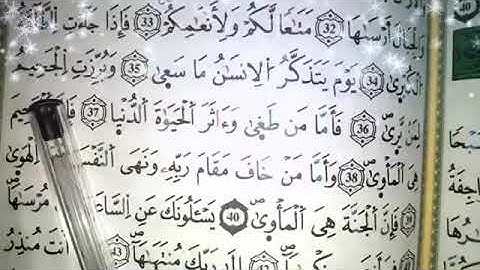 وَالْجِبَالَ أَرْسَىٰهَا 32 مَتَٰعًا لَّكُمْ وَلِأَنْعَٰمِكُمْ 33 فَإِذَا جَآءَتِ الطَّآمَّةُ
الْكُبْرَىٰ 34 يَوْمَ يَتَذَكَّرُ الْإِنسَٰنُ مَا سَعَىٰ 35 وَبُرِّزَتِ الْجَحِيمُ
لِمَن يَرَىٰ 36 فَأَمَّا مَن طَغَىٰ وَءَاثَرَ الْحَيَوٰةَ الدُّنْيَا 37
هِىَ الْمَأْوَىٰ 38 وَأَمَّا مَنْ خَافَ مَقَامَ رَبِّهِۦ وَنَهَى النَّفْسَ الْهَوَىٰ
39 فَإِنَّ الْجَنَّةَ هِىَ الْمَأْوَىٰ 40 يَسْـَٔلُونَكَ عَنِ السَّا مُرْسَىٰهَا
إِلَىٰ رَبِّكَ مُنتَهَىٰهَآ أَنتَ مُنذِرُ